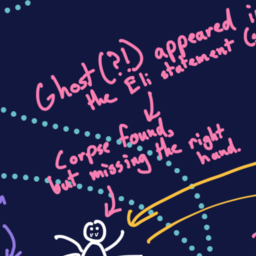 Ghost(?!) appeared i
the Eli statement G
Corpse found,
but missing the right
hand.